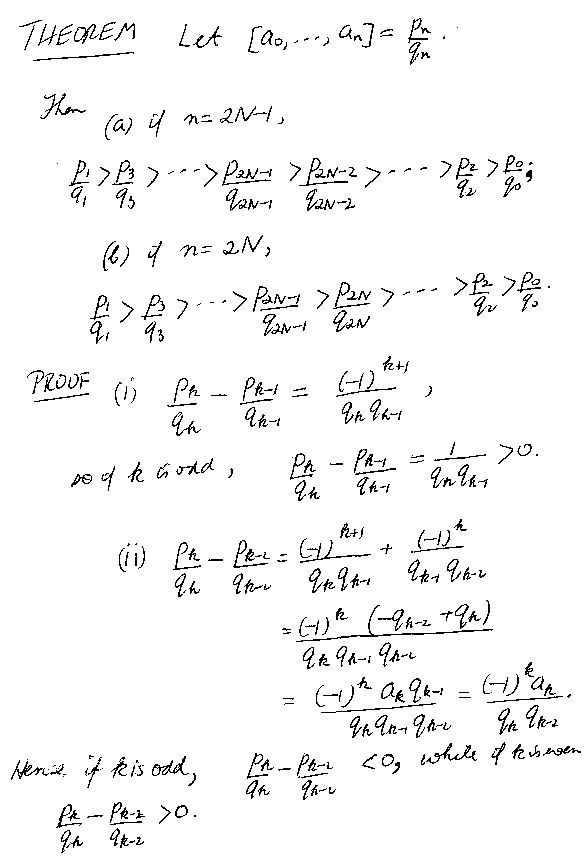 THEOREM Let [a₀, ..., aₙ] = pₙ/qₙ.
Then (a) if n = 2N-1,
p₁/q₁ > p₃/q₃ > ··· > p₂N₋₁/q₂N₋₁ > p₂N₋₂/q₂N₋₂ > ··· > p₂/q₂ > p₀/q₀;
(b) if n = 2N,
p₁/q₁ > p₃/q₃ > ··· > p₂N₋₁/q₂N₋₁ > p₂N/q₂N > ··· > p₂/q₂ > p₀/q₀.
PROOF (i) pₖ/qₖ - pₖ₋₁/qₖ₋₁ = (-1)^(k+1)/(qₖqₖ₋₁),
so if k is odd, pₖ/qₖ - pₖ₋₁/qₖ₋₁ = 1/(qₖqₖ₋₁) > 0.
(ii) pₖ/qₖ - pₖ₋₂/qₖ₋₂ = (-1)^(k+1)/(qₖqₖ₋₁) + (-1)^k/(qₖ₋₁qₖ₋₂)
= (-1)^k (-qₖ₋₂ + qₖ)/(qₖqₖ₋₁qₖ₋₂)
= (-1)^k aₖqₖ₋₁/(qₖqₖ₋₁qₖ₋₂) = (-1)^k aₖ/(qₖqₖ₋₂).
Hence if k is odd, pₖ/qₖ - pₖ₋₂/qₖ₋₂ < 0, while if k is even
pₖ/qₖ - pₖ₋₂/qₖ₋₂ > 0.